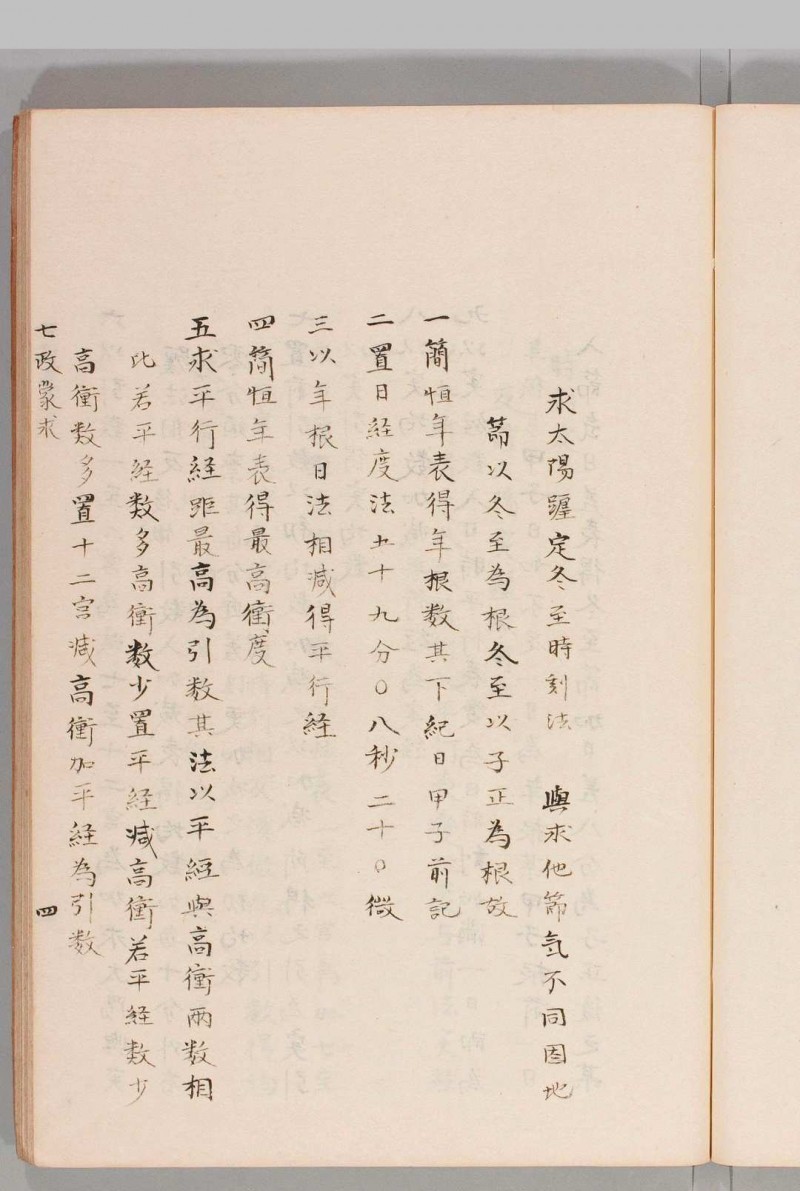 求太陽躔定冬至時刻法　與求他節氣不同因地
節以冬至為根冬至以子正為根故
一簡恒年表得年根数其下紀日甲子前記
二置日経度法五十九分〇八秒二十〇微
三以年根日法相減得平行経
四簡恒年表得最高衝度
五求平行経距最高為引数其法以平經與高衝兩数相
比若平経数多高衝数少置平経減高衝若平経数少
高衝数多置十二宮減高衝加平経為引数
七政蒙求　四